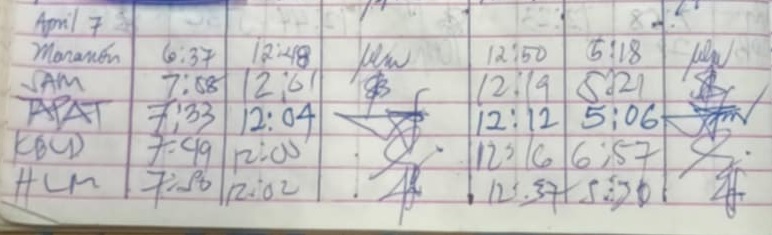 April 7
Maranon 6:37 12:48 12:50 5:18
SAM 7:58 12:01 12:19 5:21
TAPAT 7:33 12:04 12:12 5:06
KBUD 7:49 12:00 12:16 6:57
HLM 12:02 12:37